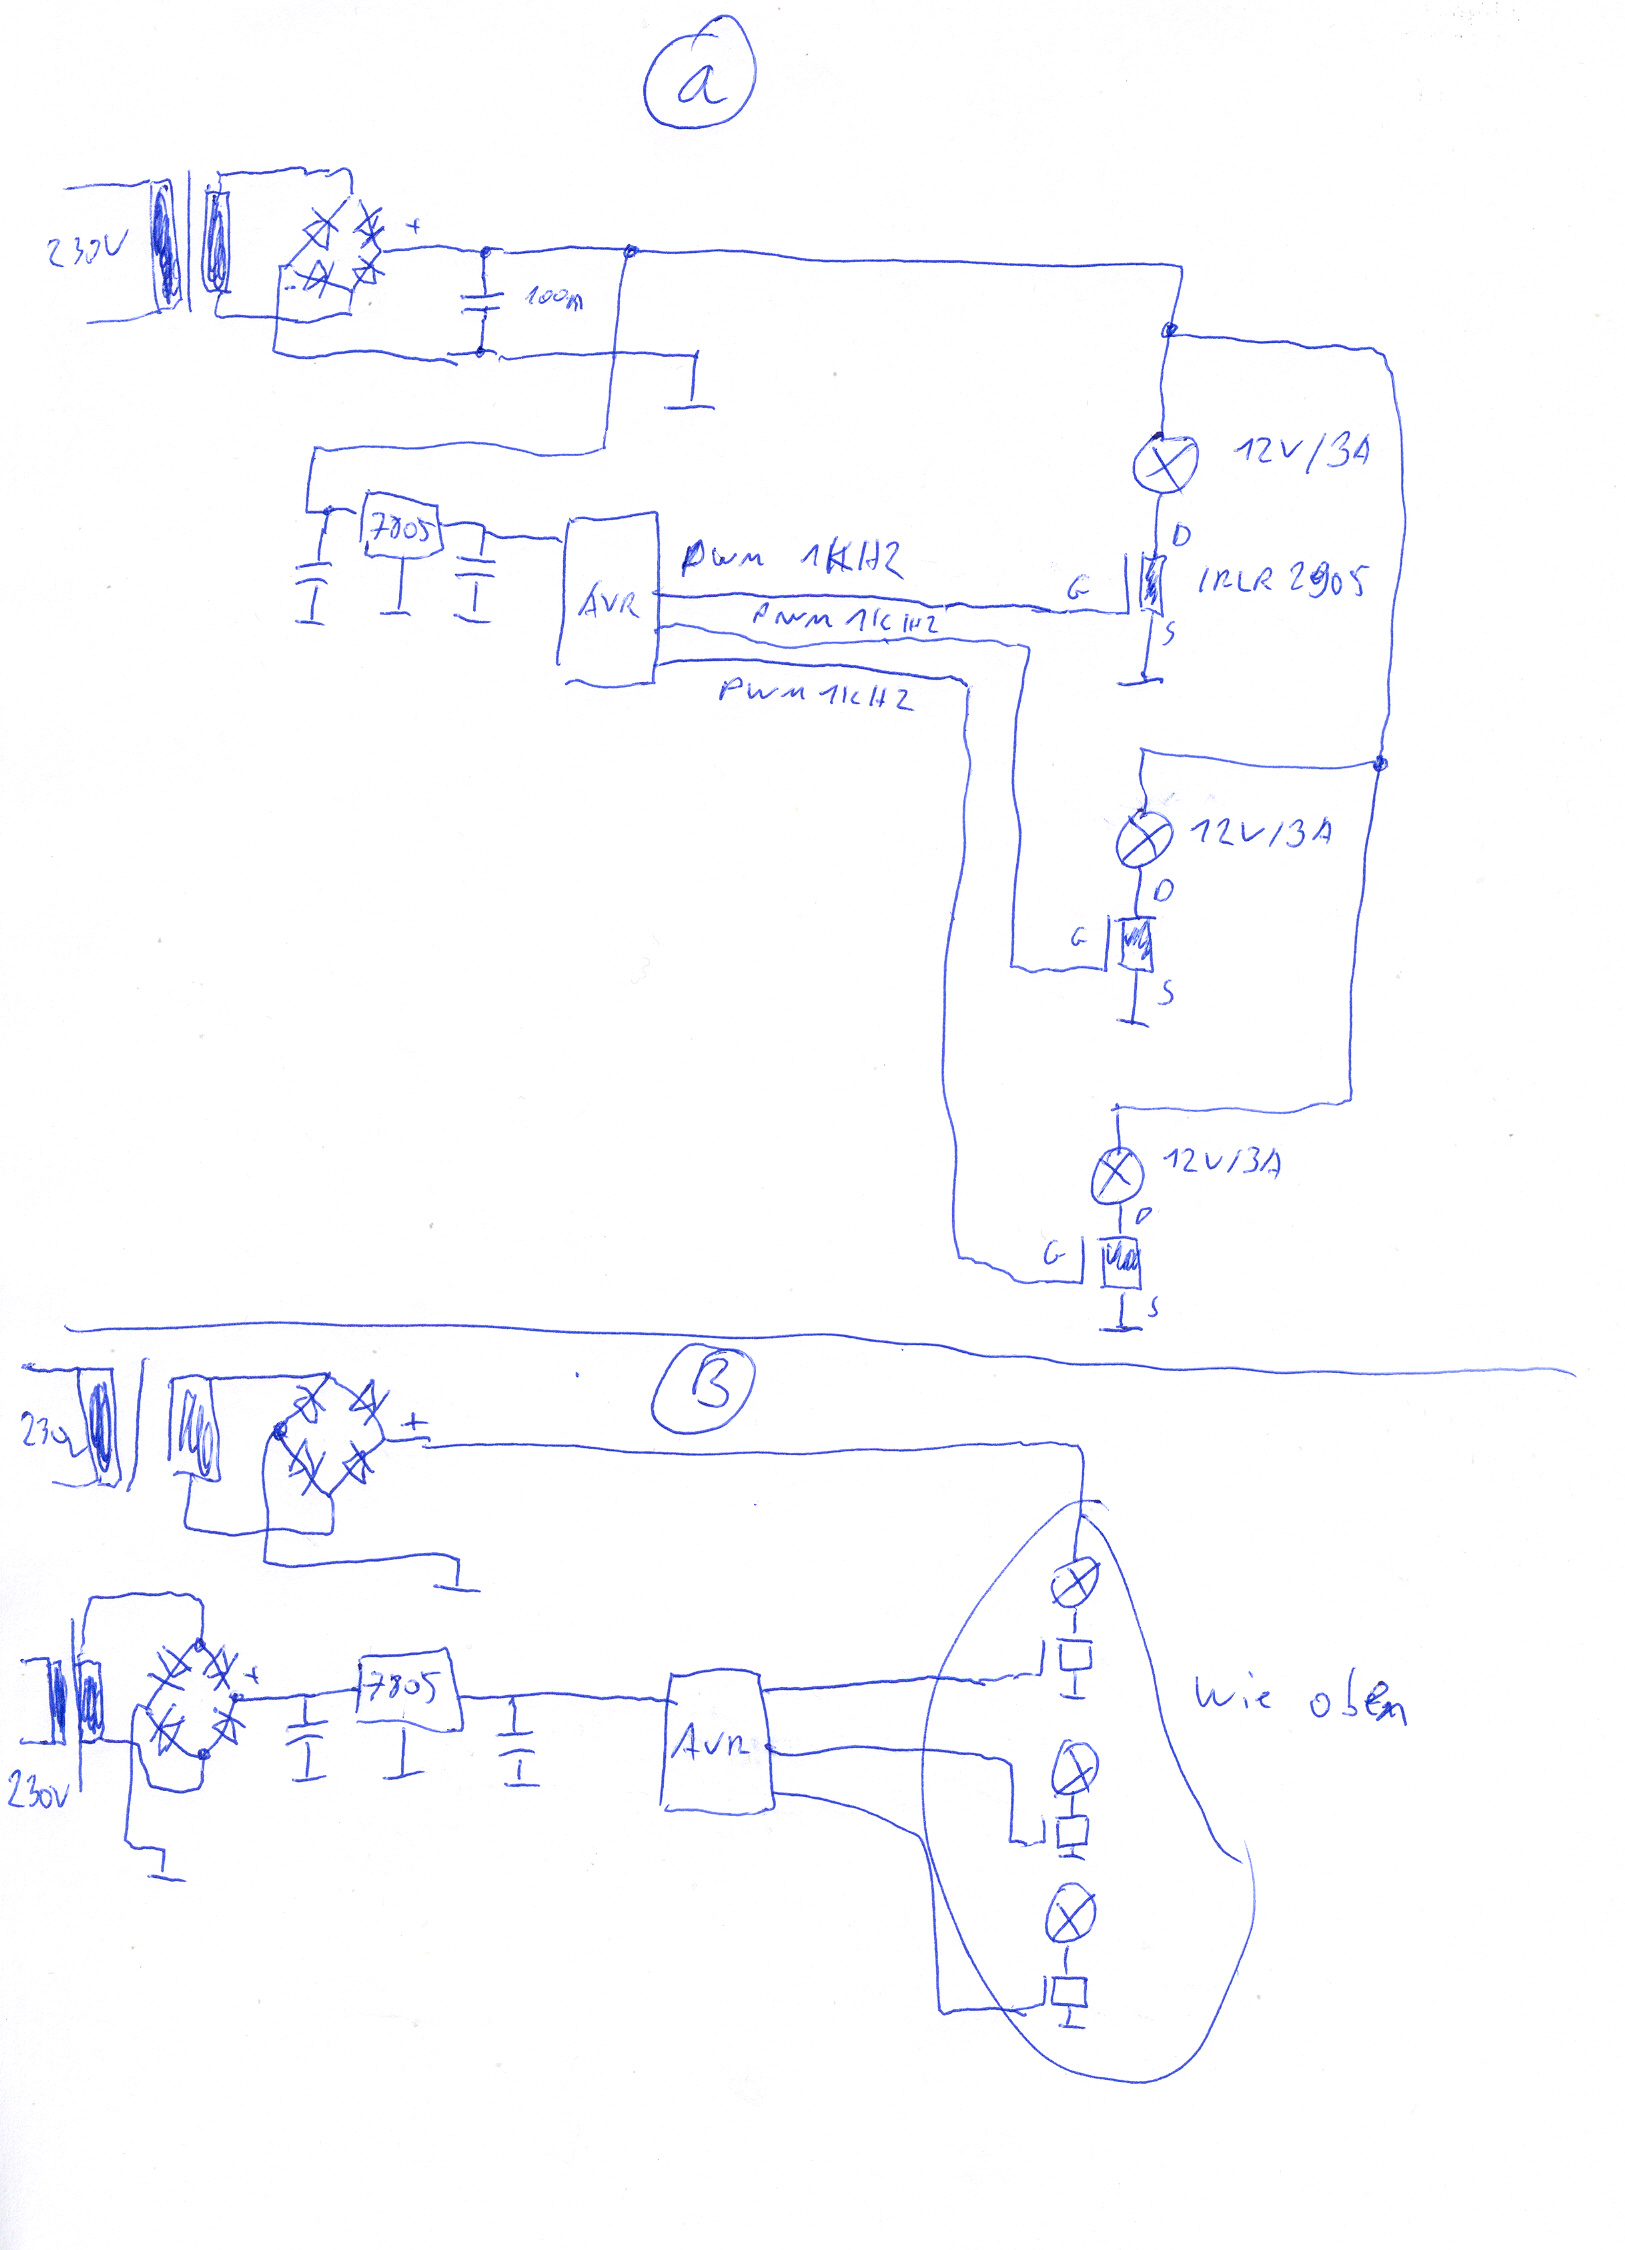 a
230V
+
-
100m
12V/3A
D
7805
PWM 1KHZ
G
IRLR 2905
AVR
PWM 1KHZ
S
PWM 1KHZ
12V/3A
D
G
S
12V/3A
D
G
S
B
230V
+
+
7805
Wie oben
AVR
230V